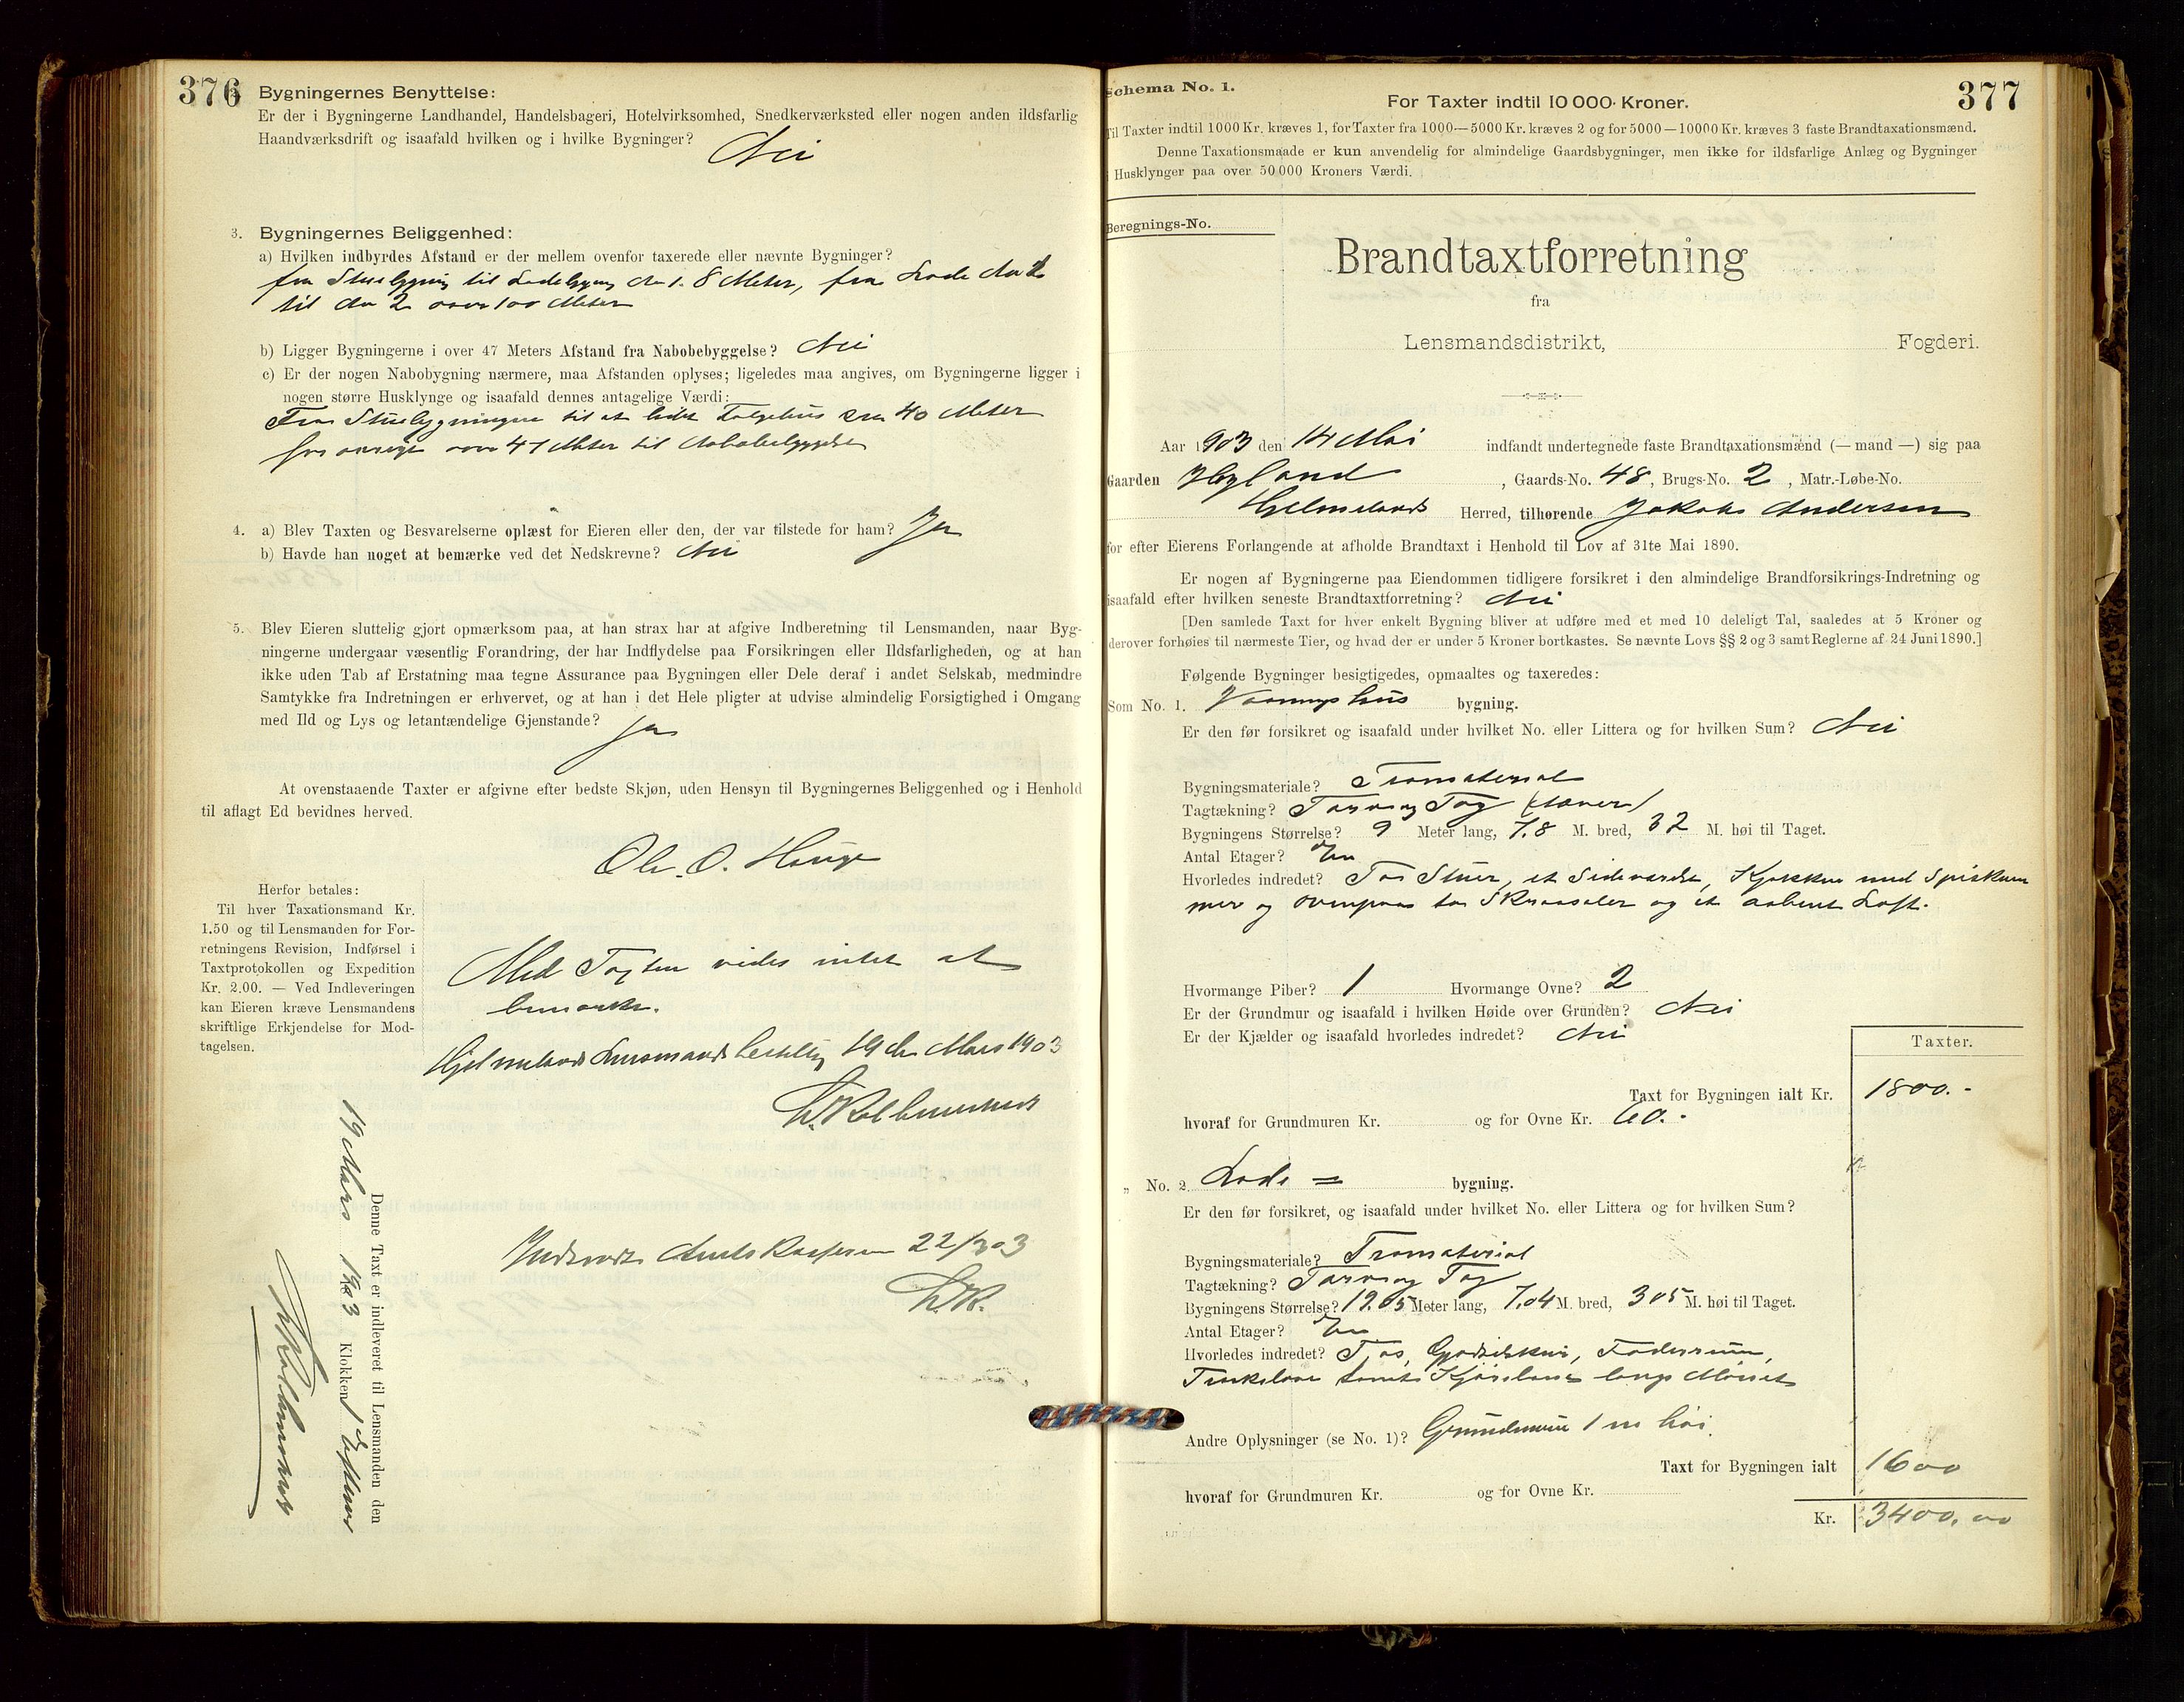 376
2. Bygningernes Benyttelse:
Er der i Bygningerne Landhandel, Handelsbageri, Hotelvirksomhed, Snedkerværksted eller nogen anden ildsfarlig
Haandværksdrift og isaafald hvilken og i hvilke Bygninger?
Nei
3. Bygningernes Beliggenhed:
a) Hvilken indbyrdes Afstand er der mellem ovenfor taxerede eller nævnte Bygninger?
fra Stuebygning til Ladebygning No 1. 8 Meter, fra Lade No 1
til No 2 over 100 Meter
b) Ligger Bygningerne i over 47 Meters Afstand fra Nabobebyggelse? Nei
c) Er der nogen Nabobygning nærmere, maa Afstanden oplyses; ligeledes maa angives, om Bygningerne ligger i
nogen større Husklynge og isaafald dennes antagelige Værdi:
Fra Stuebygningen til et lidet Følgehus 40 Meter
for øvrigt over 47 Meter til Nabobebyggelse
4. a) Blev Taxten og Besvarelserne oplæst for Eieren eller den, der var tilstede for ham? Ja
b) Havde han noget at bemærke ved det Nedskrevne? Nei
5. Blev Eieren sluttelig gjort opmærksom paa, at han strax har at afgive Indberetning til Lensmanden, naar Byg-
ningerne undergaar væsentlig Forandring, der har Indflydelse paa Forsikringen eller Ildsfarligheden, og at han
ikke uden Tab af Erstatning maa tegne Assurance paa Bygningen eller Dele deraf i andet Selskab, medmindre
Samtykke fra Indretningen er erhvervet, og at han i det Hele pligter at udvise almindelig Forsigtighed i Omgang
med Ild og Lys og letantændelige Gjenstande?
Ja
At ovenstaaende Taxter er afgivne efter bedste Skjøn, uden Hensyn til Bygningernes Beliggenhed og i Henhold
til aflagt Ed bevidnes herved.
Ole. O. Hauge
Herfor betales:
Til hver Taxationsmand Kr.
1.50 og til Lensmanden for For-
retningens Revision, Indførsel i
Taxtprotokollen og Expedition
Kr. 2.00. — Ved Indleveringen
kan Eieren kræve Lensmandens
skriftlige Erkjendelse for Mod-
tagelsen.
Med Taxten vides intet at
bemærke.
Hjelmeland Lensmandsbestilling 19de Mars 1903
Denne Taxt er indleveret til Lensmanden den
19 Mars 1903 Klokken 1 Efterm
Indsendt Amtskassereren 22/3 03
377
Schema No. 1.
For Taxter indtil 10 000 Kroner.
Til Taxter indtil 1000 Kr. kræves 1, for Taxter fra 1000—5000 Kr. kræves 2 og for 5000—10000 Kr. kræves 3 faste Brandtaxationsmænd.
Denne Taxationsmaade er kun anvendelig for almindelige Gaardsbygninger, men ikke for ildsfarlige Anlæg og Bygninger
i Husklynger paa over 50 000 Kroners Værdi.
Beregnings-No.
Brandtaxtforretning
fra
Lensmandsdistrikt, Fogderi.
Aar 1903 den 14 Mai indfandt undertegnede faste Brandtaxationsmænd (—mand—) sig paa
Gaarden Høyland, Gaards-No. 48, Brugs-No. 2, Matr.-Løbe-No.
Hjelmelands Herred, tilhørende Jakob Andersen
for efter Eierens Forlangende at afholde Brandtaxt i Henhold til Lov af 31te Mai 1890.
Er nogen af Bygningerne paa Eiendommen tidligere forsikret i den almindelige Brandforsikrings-Indretning og
isaafald efter hvilken seneste Brandtaxtforretning? Nei
[Den samlede Taxt for hver enkelt Bygning bliver at udføre med et med 10 deleligt Tal, saaledes at 5 Kroner og
derover forhøies til nærmeste Tier, og hvad der er under 5 Kroner bortkastes. Se nævnte Lovs §§ 2 og 3 samt Reglerne af 24 Juni 1890.]
Følgende Bygninger besigtigedes, opmaaltes og taxeredes:
Som No. 1. Vaaningshus bygning.
Er den før forsikret og isaafald under hvilket No. eller Littera og for hvilken Sum? Nei
Bygningsmateriale? Træmaterial
Tagtækning? Torv og Tag (Næver)
Bygningens Størrelse? 9 Meter lang, 7.8 M. bred, 32 M. høi til Taget.
Antal Etager? En
Hvorledes indredet? To Stuer, et Sideværelse, Kjøkken med Spiskam
mer og ovenpaa to Skraasaler og et aabent Loft.
Hvormange Piber? 1 Hvormange Ovne? 2
Er der Grundmur og isaafald i hvilken Høide over Grunden? Nei
Er der Kjælder og isaafald hvorledes indredet? Nei
Taxter.
Taxt for Bygningen ialt Kr. 1800.-
hvoraf for Grundmuren Kr. og for Ovne Kr. 60.-
„ No. 2. Lade = bygning.
Er den før forsikret, og isaafald under hvilket No. eller Littera og for hvilken Sum?
Bygningsmateriale? Træmaterial
Tagtækning? Torv og Tag
Bygningens Størrelse? 19.05 Meter lang, 7.04 M. bred, 305 M. høi til Taget.
Antal Etager? En
Hvorledes indredet? Fjøs, Gjødselskur, Foderrum,
Træskelave samt Kjørelave langs Mønet
Andre Oplysninger (se No. 1)? Grundmur 1 m høi.
Taxt for Bygningen ialt 1600
hvoraf for Grundmuren Kr. og for Ovne Kr.
Kr. 3400.00